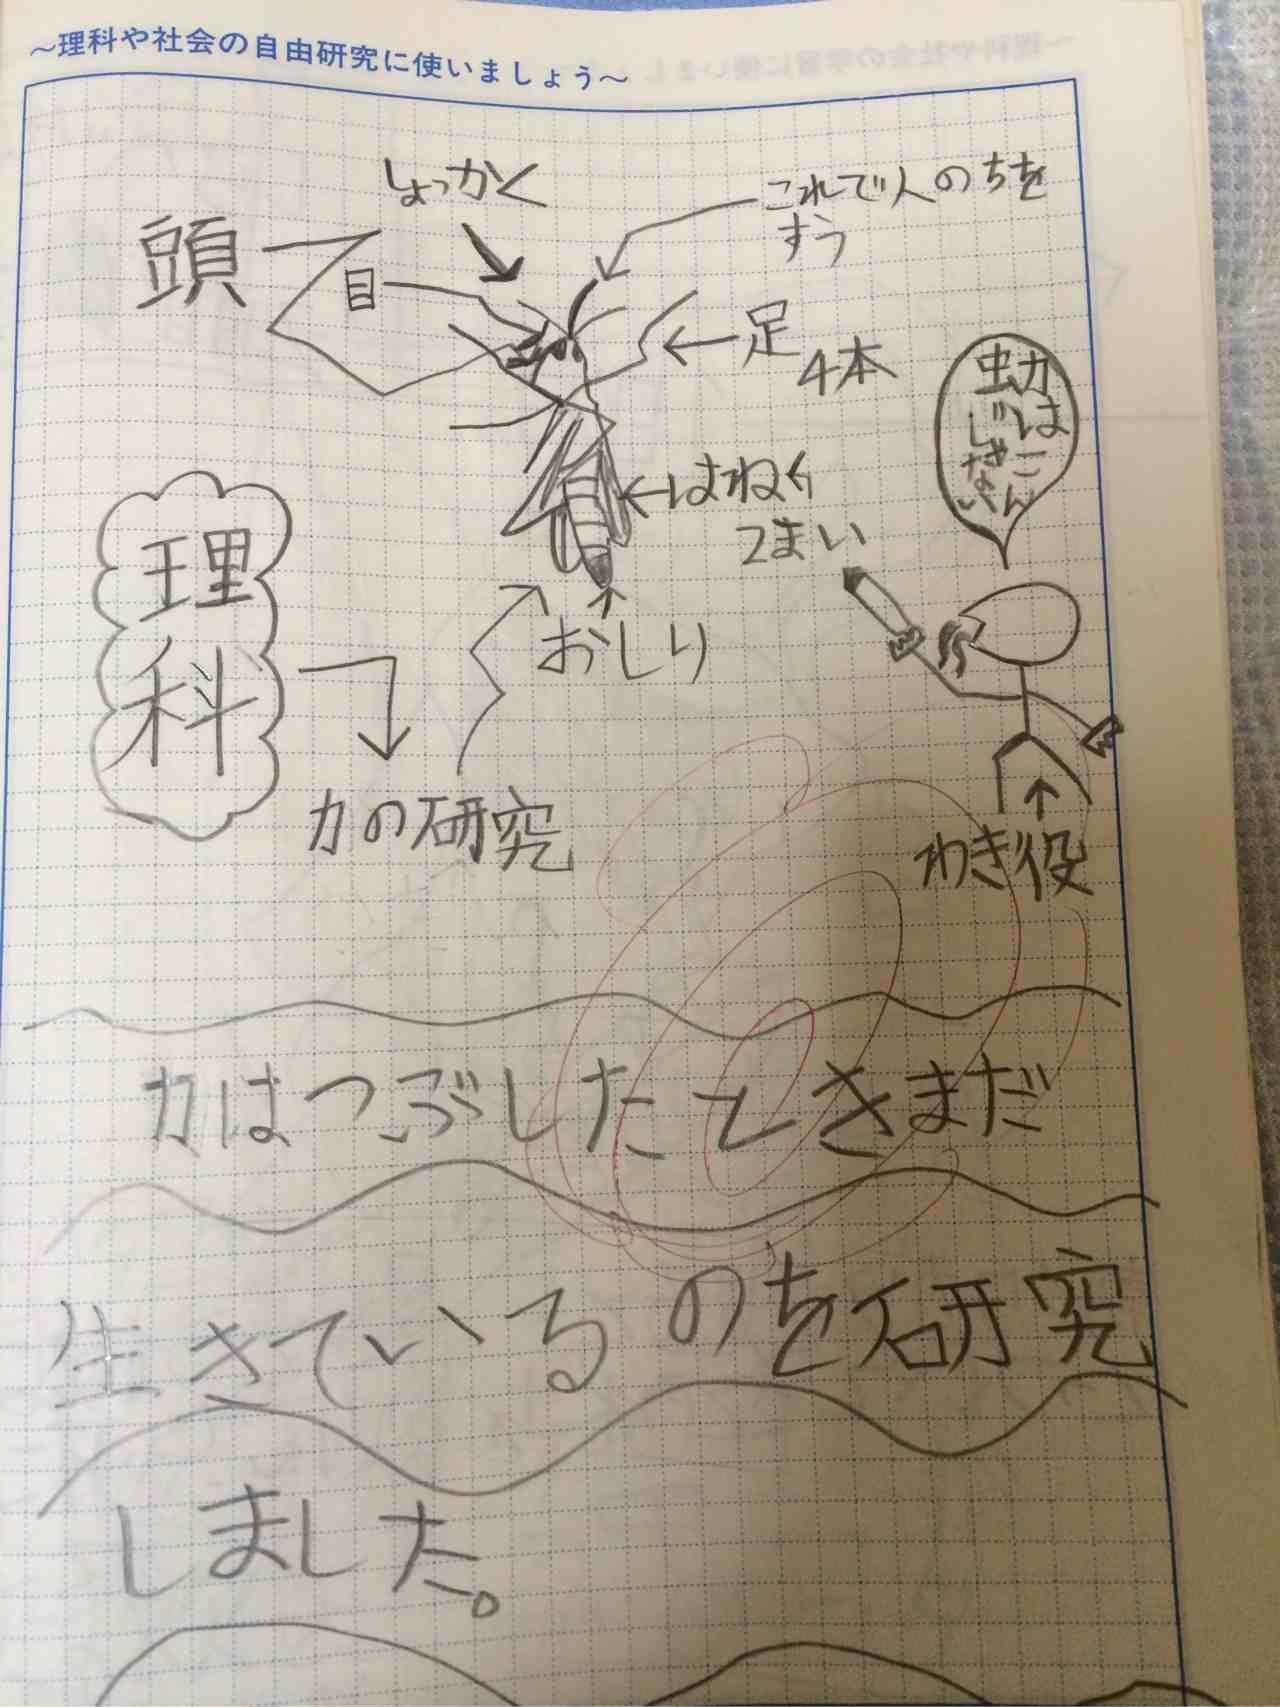 ~理科や社会の自由研究に使いましょう~
しょっかく
これで人のちを
すう
頭
目
足
4本
カはこん
虫じゃない
はね
2まい
おしり
理科
カの研究
わき役
カはつぶしたときまだ
生きているのを研究
しました。